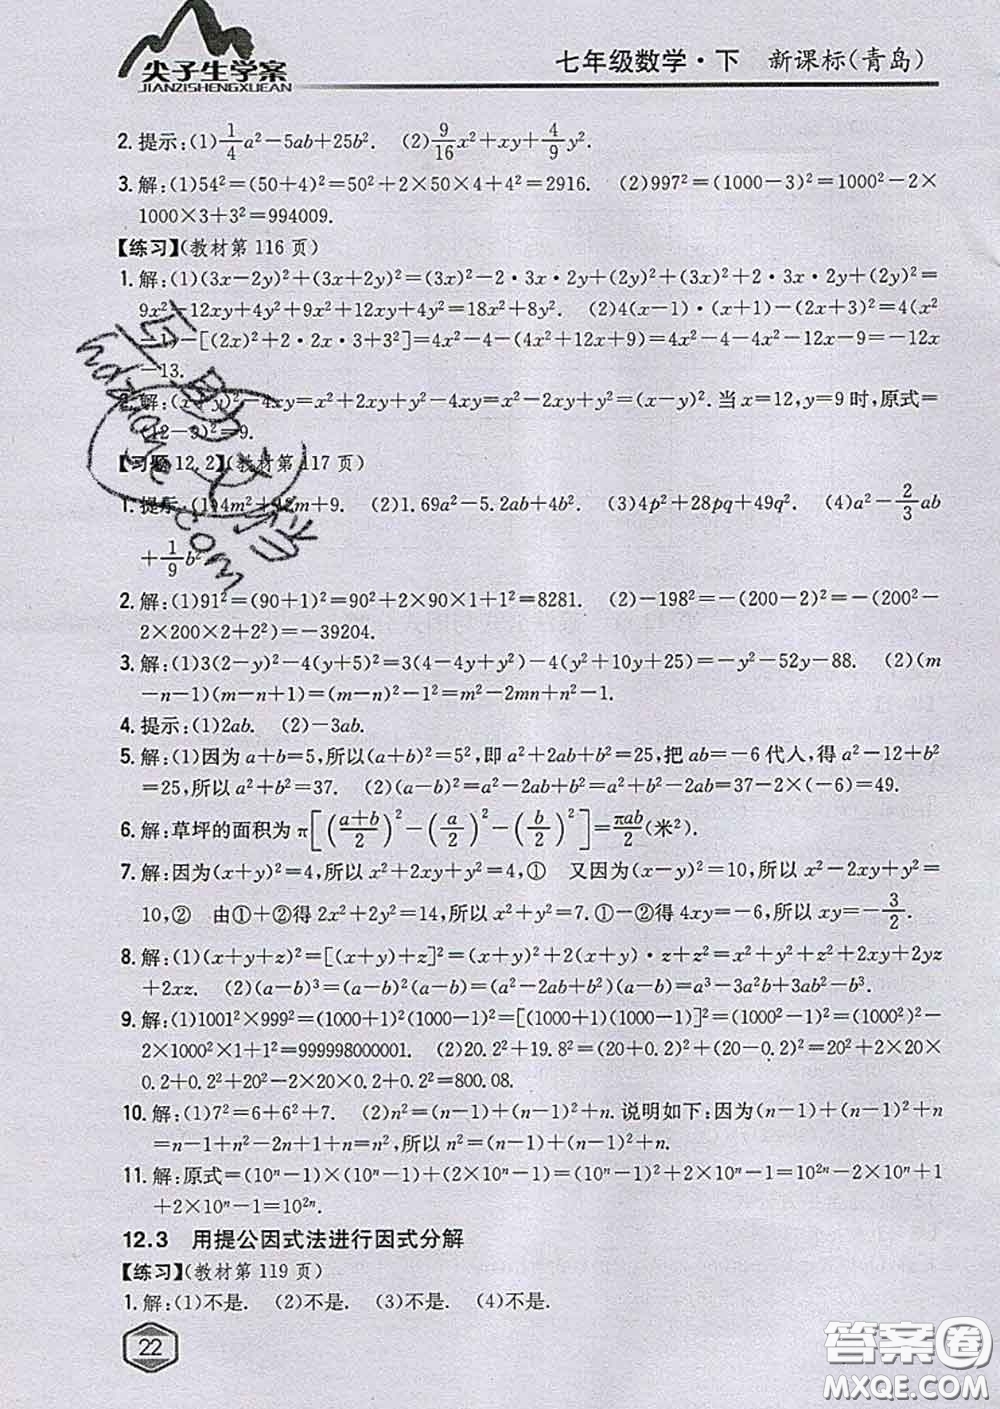 尖子生学案
JIANZISHENGXUEAN
七年级数学·下 新课标(青岛)
2. 提示:(1)1/4a²−5ab+25b². (2)9/16x²+xy+4/9y².
3. 解:(1)54²=(50+4)²=50²+2×50×4+4²=2916. (2)997²=(1000−3)²=1000²−2×
1000×3+3²=994009.
【练习】(教材第116页)
1. 解:(1)(3x−2y)²+(3x+2y)²=(3x)²−2·3x·2y+(2y)²+(3x)²+2·3x·2y+(2y)²=
9x²−12xy+4y²+9x²+12xy+4y²=18x²+8y². (2)4(x−1)·(x+1)−(2x+3)²=4(x²
−1)−[(2x)²+2·2x·3+3²]=4x²−4−(4x²+12x+9)=4x²−4−4x²−12x−9=−12x
−13.
2. 解:(x+y)²−4xy=x²+2xy+y²−4xy=x²−2xy+y²=(x−y)².当x=12,y=9时,原式=
(12−3)²=9.
【习题12.2】(教材第117页)
1. 提示:(1)4m²+12m+9. (2)1.69a²−5.2ab+4b². (3)4p²+28pq+49q². (4)a²−2/3ab
+1/9b²
2. 解:(1)91²=(90+1)²=90²+2×90×1+1²=8281. (2)−198²=−(200−2)²=−(200²−
2×200×2+2²)=−39204.
3. 解:(1)3(2−y)²−4(y+5)²=3(4−4y+y²)−4(y²+10y+25)=−y²−52y−88. (2)(m
−n−1)(m−n+1)=(m−n)²−1²=m²−2mn+n²−1.
4. 提示:(1)2ab. (2)−3ab.
5. 解:(1)因为a+b=5,所以(a+b)²=5²,即a²+2ab+b²=25,把ab=−6代人,得a²−12+b²
=25,所以a²+b²=37. (2)(a−b)²=a²−2ab+b²=a²+b²−2ab=37−2×(−6)=49.
6. 解:草坪的面积为π[((a+b)/2)²−(a/2)²−(b/2)²]=πab/2(米²).
7. 解:因为(x+y)²=4,所以x²+2xy+y²=4,① 又因为(x−y)²=10,所以x²−2xy+y²=
10,② 由①+②得2x²+2y²=14,所以x²+y²=7.①−②得4xy=−6,所以xy=−3/2.
8. 解:(1)(x+y+z)²=[(x+y)+z]²=(x+y)²+2(x+y)·z+z²=x²+y²+z²+2xy+2yz
+2xz. (2)(a−b)³=(a−b)²(a−b)=(a²−2ab+b²)(a−b)=a³−3a²b+3ab²−b³.
9. 解:(1)1001²×999²=(1000+1)²(1000−1)²=[(1000+1)(1000−1)]²=(1000²−1)²=(1000²)²−
2×1000²×1+1²=999998000001. (2)20.2²+19.8²=(20+0.2)²+(20−0.2)²=20²+2×20×
0.2+0.2²+20²−2×20×0.2+0.2²=800.08.
10. 解:(1)7²=6+6²+7. (2)n²=(n−1)+(n−1)²+n.说明如下:因为(n−1)+(n−1)²+n
=n−1+n²−2n+1+n=n²,所以n²=(n−1)+(n−1)²+n.
11. 解:原式=(10ⁿ−1)×(10ⁿ−1)+(2×10ⁿ−1)=(10ⁿ−1)²+2×10ⁿ−1=10²ⁿ−2×10ⁿ+1
+2×10ⁿ−1=10²ⁿ.
12.3 用提公因式法进行因式分解
【练习】(教材第119页)
1. 解:(1)不是. (2)不是. (3)不是. (4)不是.
22
答案圈
MXQE.COM